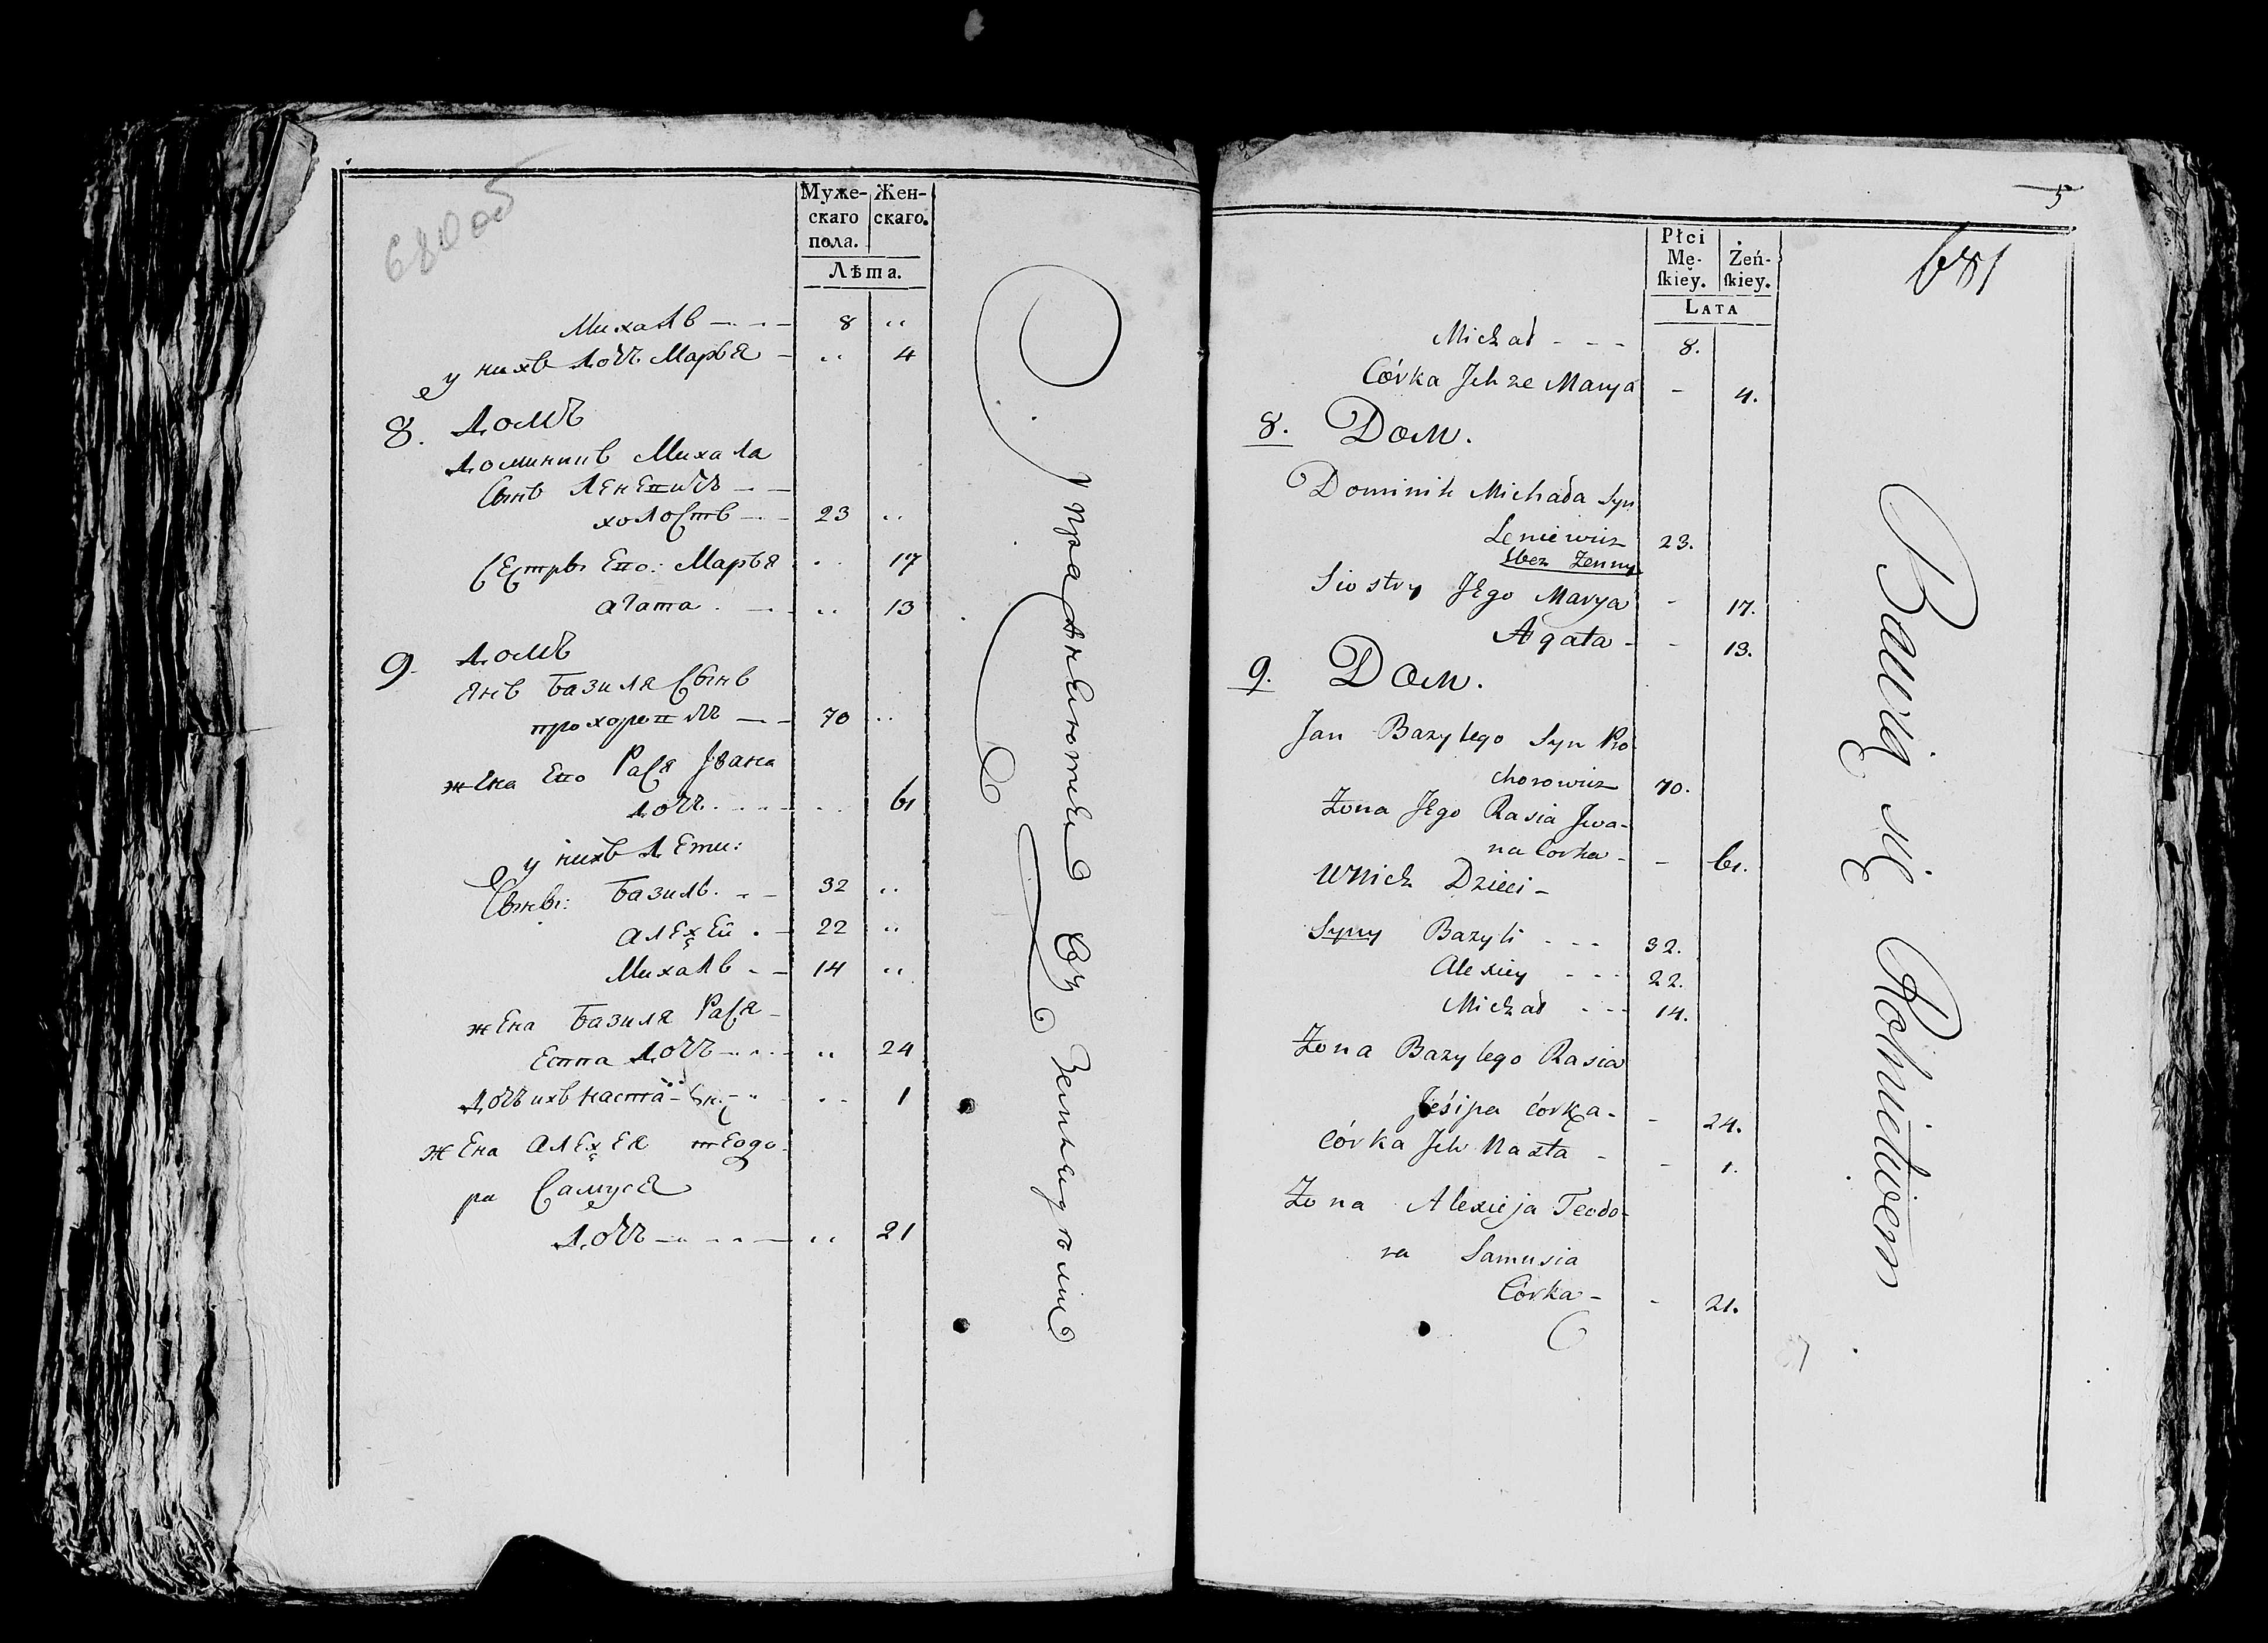 680 об
Муже- Жен-
скаго скаго.
пола.
Лѣта.
Михалъ 8 "
у нихъ дочь Марья " 4
8. Домъ
Доминикъ Михала
Сынъ Леневичъ
холостъ 23 "
Сестры Его: Марья " 17
Агата " 13
9. Домъ
Янъ Базиля Сынъ
Прохоровичъ 70 "
жена Его Рася Ивана
дочь " 61
у нихъ дети:
Сыны: Базиль 32 "
Алексей 22 "
Михалъ 14 "
жена Базиля Рася
дочь " 24
дочь ихъ Наста " 1
жена Алексея Теодо-
ра Самуся
дочь " 21
Упражнеютьсе въ Земледелии
5
681
Płci
Mę- Żeń-
ſkiey. ſkiey.
LATA
Michał - - - 8.
Córka Jchze Marya - 4.
8. Dom.
Dominik Michała Syn
Leniewicz 23.
bez Zenny
Siostry Jego Marya - 17.
Agata - - 13.
9. Dom.
Jan Bazylego Syn Pro
chorowicz 70.
Żona Jego Rasia Jwa-
na Corka - - 61.
U Nich Dzieci -
Syny Bazyli - - - 32.
Alexiey - - - 22.
Michał - - - 14.
Żona Bazylego Rasia
Jesipa córka - - 24.
Córka Jch Nasta - - 1.
Żona Alexieja Teodo-
ra Samusia
Córka - - 21.
Bawią się Rolnictwem